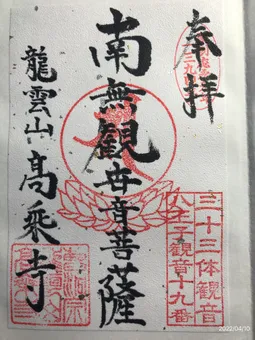 奉拝
南無觀世音菩薩
龍雲山 高乗寺
三十三体観音
八王子観音十九番
2022/04/10